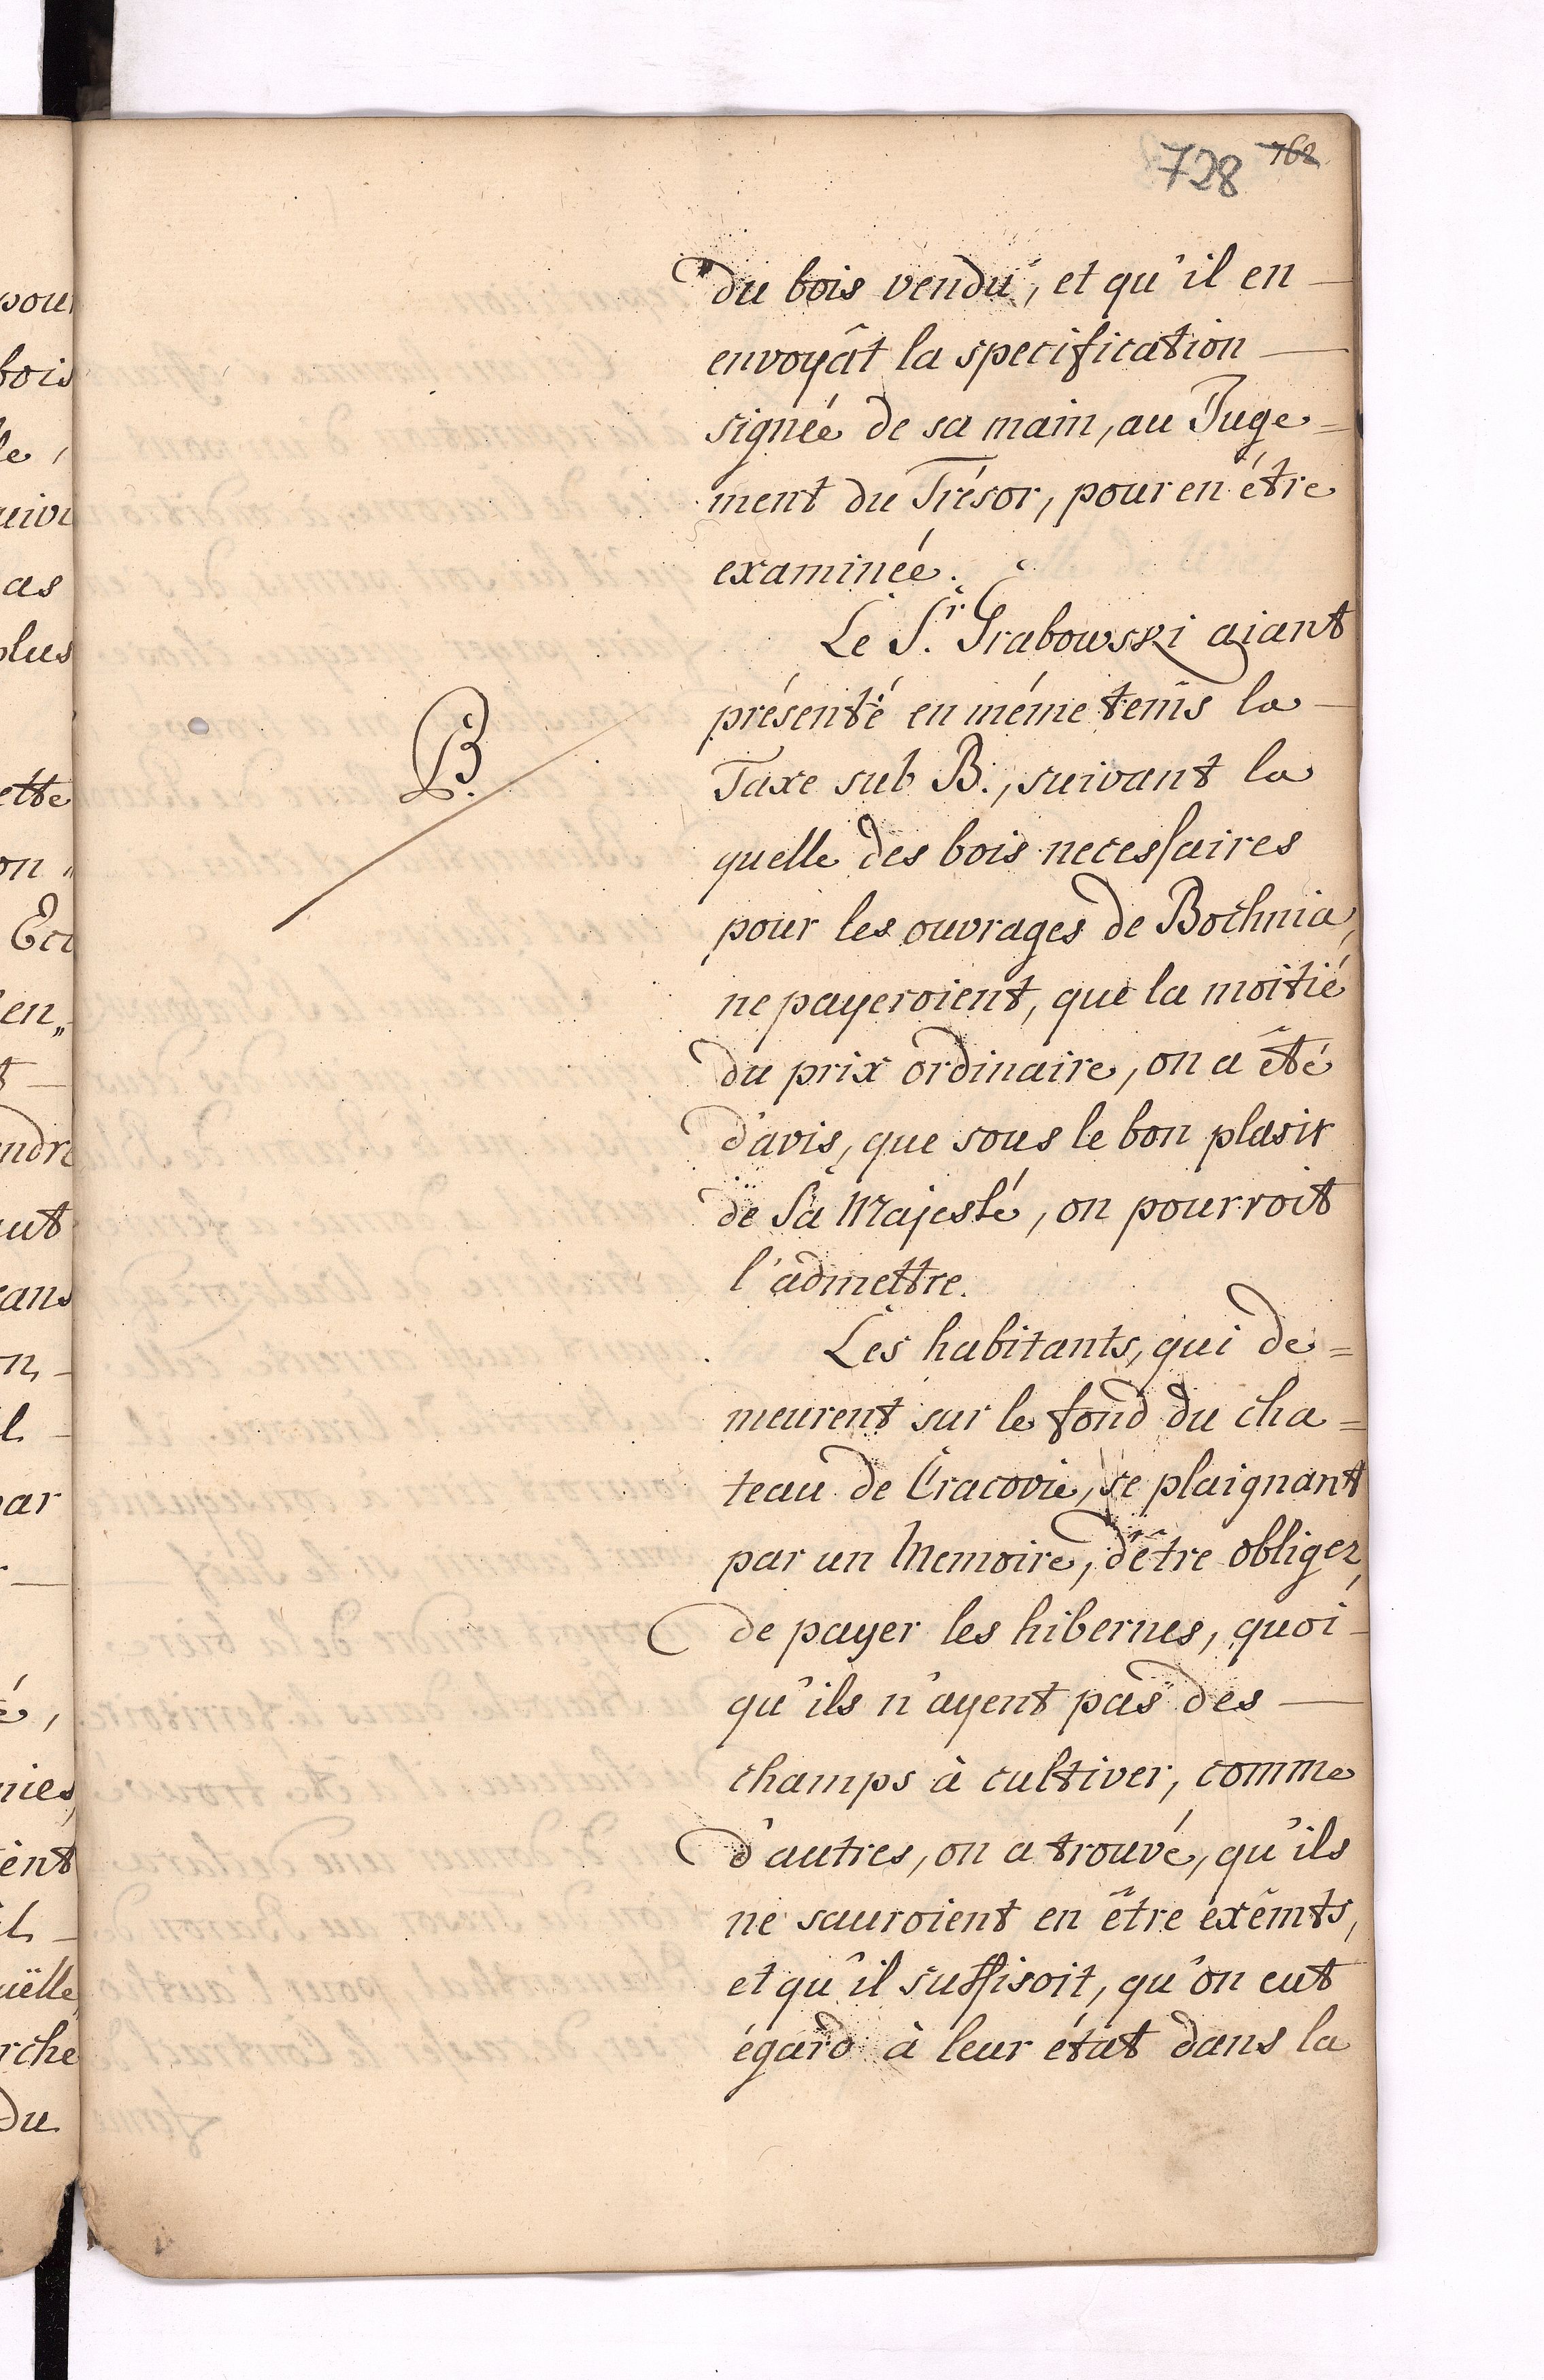 728 762
du bois vendu, et qu'il en —
envoyât la specification —
signée de sa main, au Juge=
ment du Trésor, pour en étre
examinée.
Le S.r Grabowski aiant
présenté en méme tems la —
B.
Taxe sub B., suivant la
quelle des bois necessaires
pour les ouvrages de Bochnia,
ne payeroient, que la moitié
du prix ordinaire, on a été
d'avis, que sous le bon plasir
de Sa Majesté, on pourroit
l'admettre.
Les habitants, qui de=
meurent sur le fond du cha=
teau de Cracovie, se plaignant
par un Memoire, d'être obligez,
de payer les hibernes, quoi-
qu'ils n'ayent pas des —
champs à cultiver, comme
d'autres, on a trouvé, qu'ils
ne sauroient en être exémts,
et qu'il suffisoit, qu'on eut
égard à leur état dans la